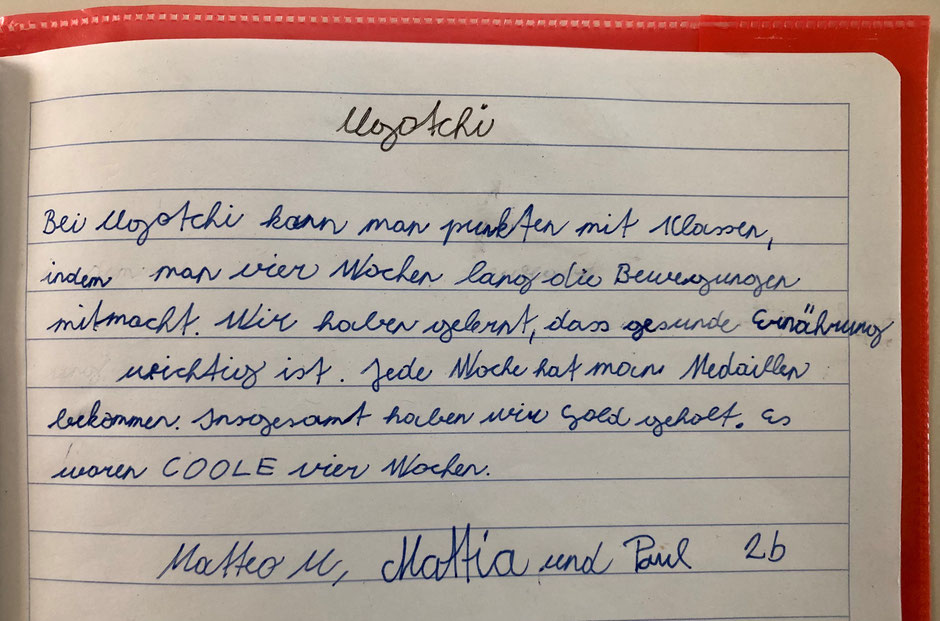 Ugotchi
Bei Ugotchi kann man punkten mit Klassen,
indem man vier Wochen lang die Bewegungen
mitmacht. Wir haben gelernt, dass gesunde Ernährung
wichtig ist. Jede Woche hat man Medaillen
bekommen. Insgesamt haben wir Gold geholt. Es
waren COOLE vier Wochen.
Matteo M, Mattia und Paul 2b